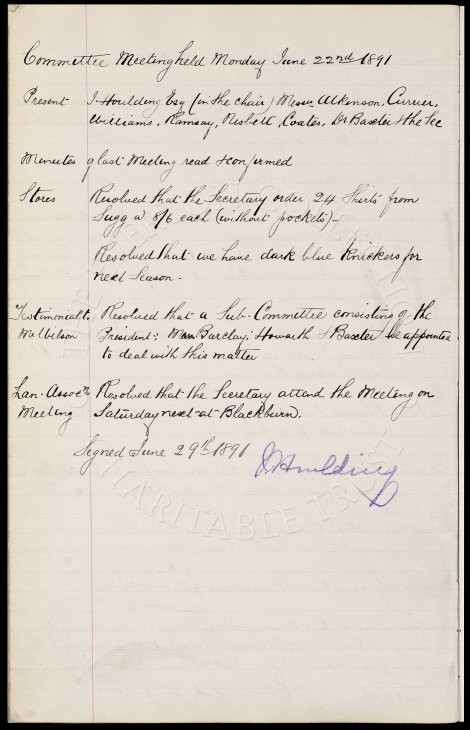 Committee Meeting held Monday June 22nd 1891
Present J. Houlding Esq (in the chair) Messrs Atkinson, Currier,
Williams, Ramsay, Nisbett, Coates, Dr Baxter & the Sec
Minutes of last Meeting read & confirmed
Stores Resolved that the Secretary order 24 Shirts from
Sugg @ 8/6 each (without pockets) -
Resolved that we have dark blue Knickers for
next Season -
Testimonial to Resolved that a Sub-Committee consisting of the
Mr Wilson President; Barclay, Howarth & Baxter be appointed
to deal with this matter
Lan. Assocn Resolved that the Secretary attend the Meeting on
Meeting Saturday next at Blackburn.
Signed June 29th 1891
J. Houlding
CHARITABLE TRUST